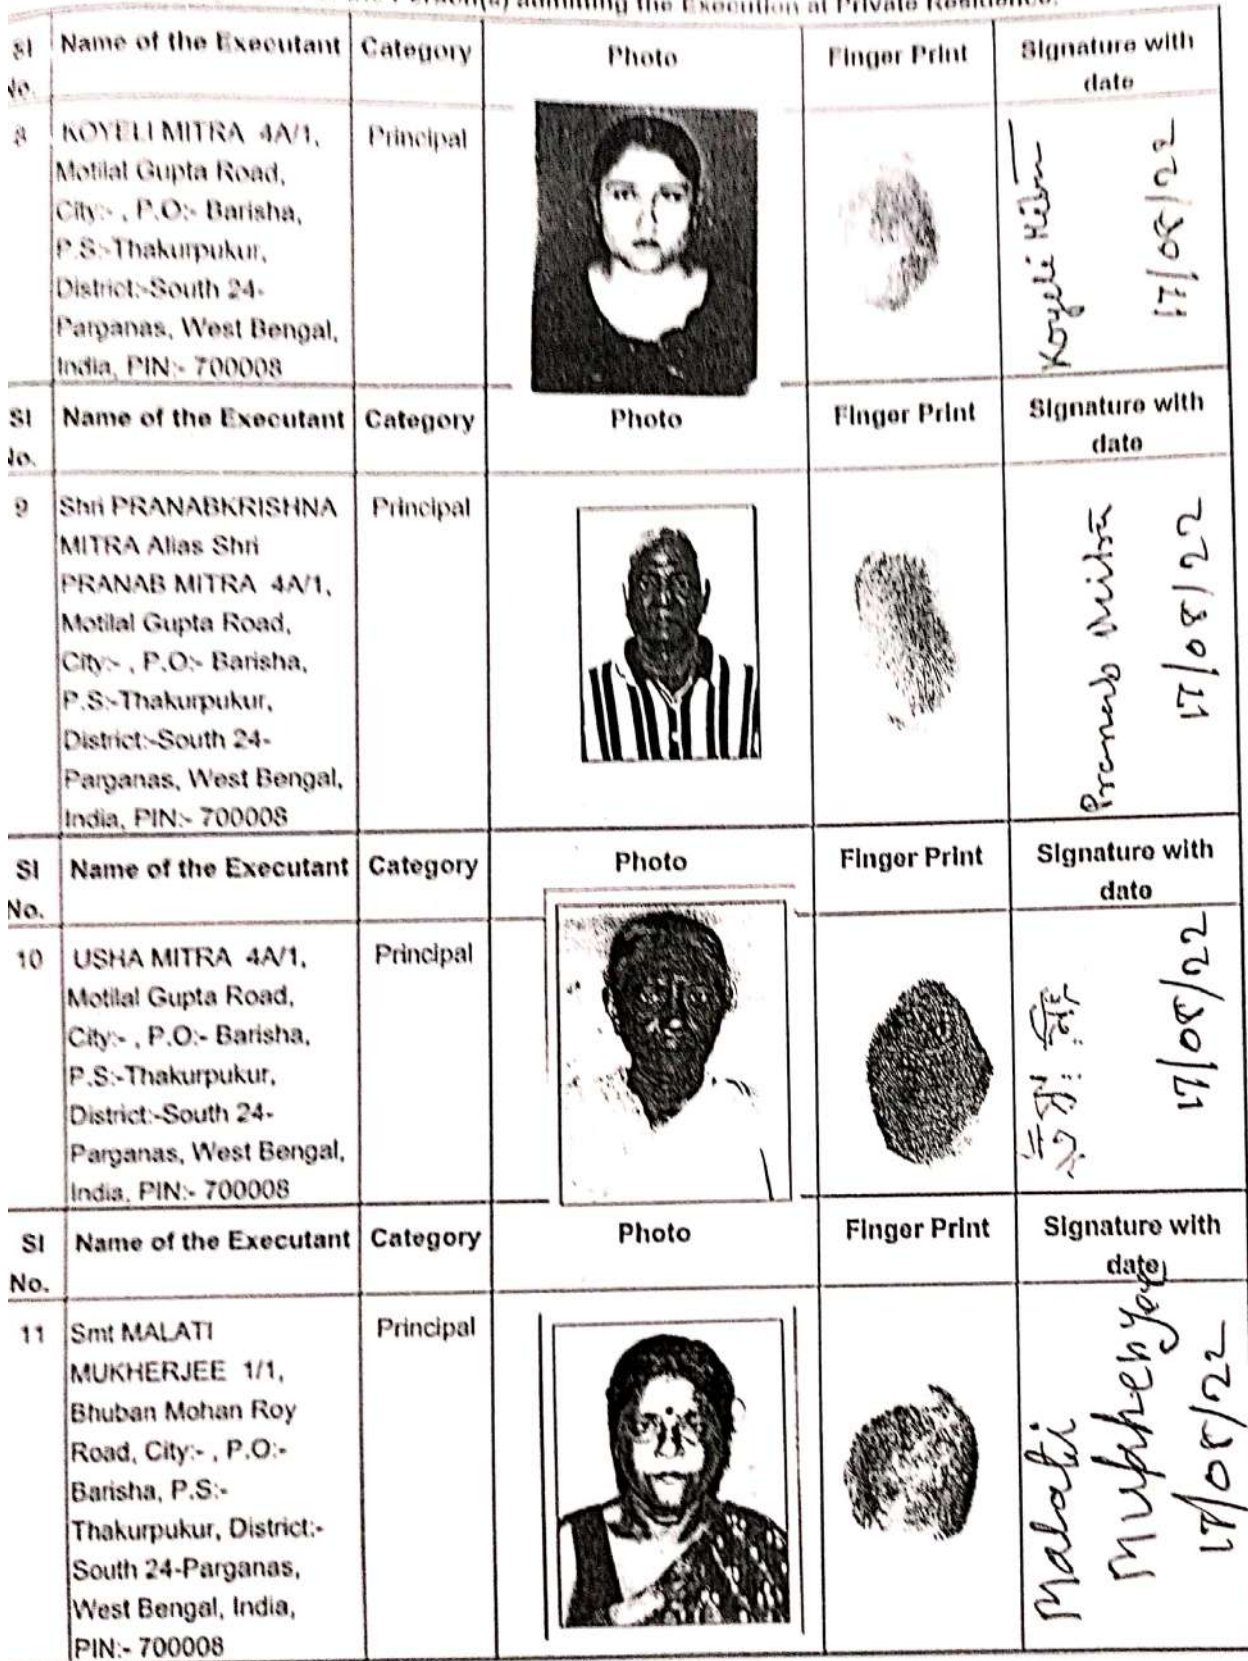 the Person(s) admitting the Execution at Private Residence.
Sl No. Name of the Executant Category Photo Finger Print Signature with date
8 KOYELI MITRA 4A/1, Principal
Motilal Gupta Road,
City:- , P.O:- Barisha,
P.S:-Thakurpukur,
District:-South 24-
Parganas, West Bengal,
India, PIN:- 700008
Koyeli Mitra
17/08/22
Sl No. Name of the Executant Category Photo Finger Print Signature with date
9 Shri PRANABKRISHNA Principal
MITRA Alias Shri
PRANAB MITRA 4A/1,
Motilal Gupta Road,
City:- , P.O:- Barisha,
P.S:-Thakurpukur,
District:-South 24-
Parganas, West Bengal,
India, PIN:- 700008
Pranab Mitra
17/08/22
Sl No. Name of the Executant Category Photo Finger Print Signature with date
10 USHA MITRA 4A/1, Principal
Motilal Gupta Road,
City:- , P.O:- Barisha,
P.S:-Thakurpukur,
District:-South 24-
Parganas, West Bengal,
India, PIN:- 700008
17/08/22
Sl No. Name of the Executant Category Photo Finger Print Signature with date
11 Smt MALATI Principal
MUKHERJEE 1/1,
Bhuban Mohan Roy
Road, City:- , P.O:-
Barisha, P.S:-
Thakurpukur, District:-
South 24-Parganas,
West Bengal, India,
PIN:- 700008
Malati
17/08/22